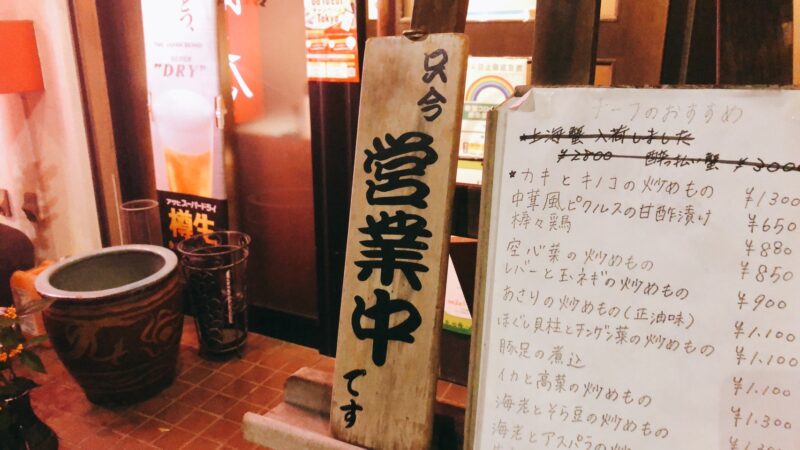 "DRY"
アサヒスーパードライ
樽生
只今
営業中
です
チーフのおすすめ
上海蟹入荷しました
¥2800 酔っ払い蟹 ¥3000
*カキとキノコの炒めもの ¥1300
中華風ピクルスの甘酢漬け ¥650
棒々鶏 ¥880
空心菜の炒めもの ¥850
レバーと玉ネギの炒めもの ¥900
あさりの炒めもの(正油味) ¥1.100
ほぐし貝柱とチンゲン菜の炒めもの ¥1.100
豚足の煮込 ¥1.100
イカと高菜の炒めもの ¥1.300
海老とそら豆の炒めもの
海老とアスパラの炒